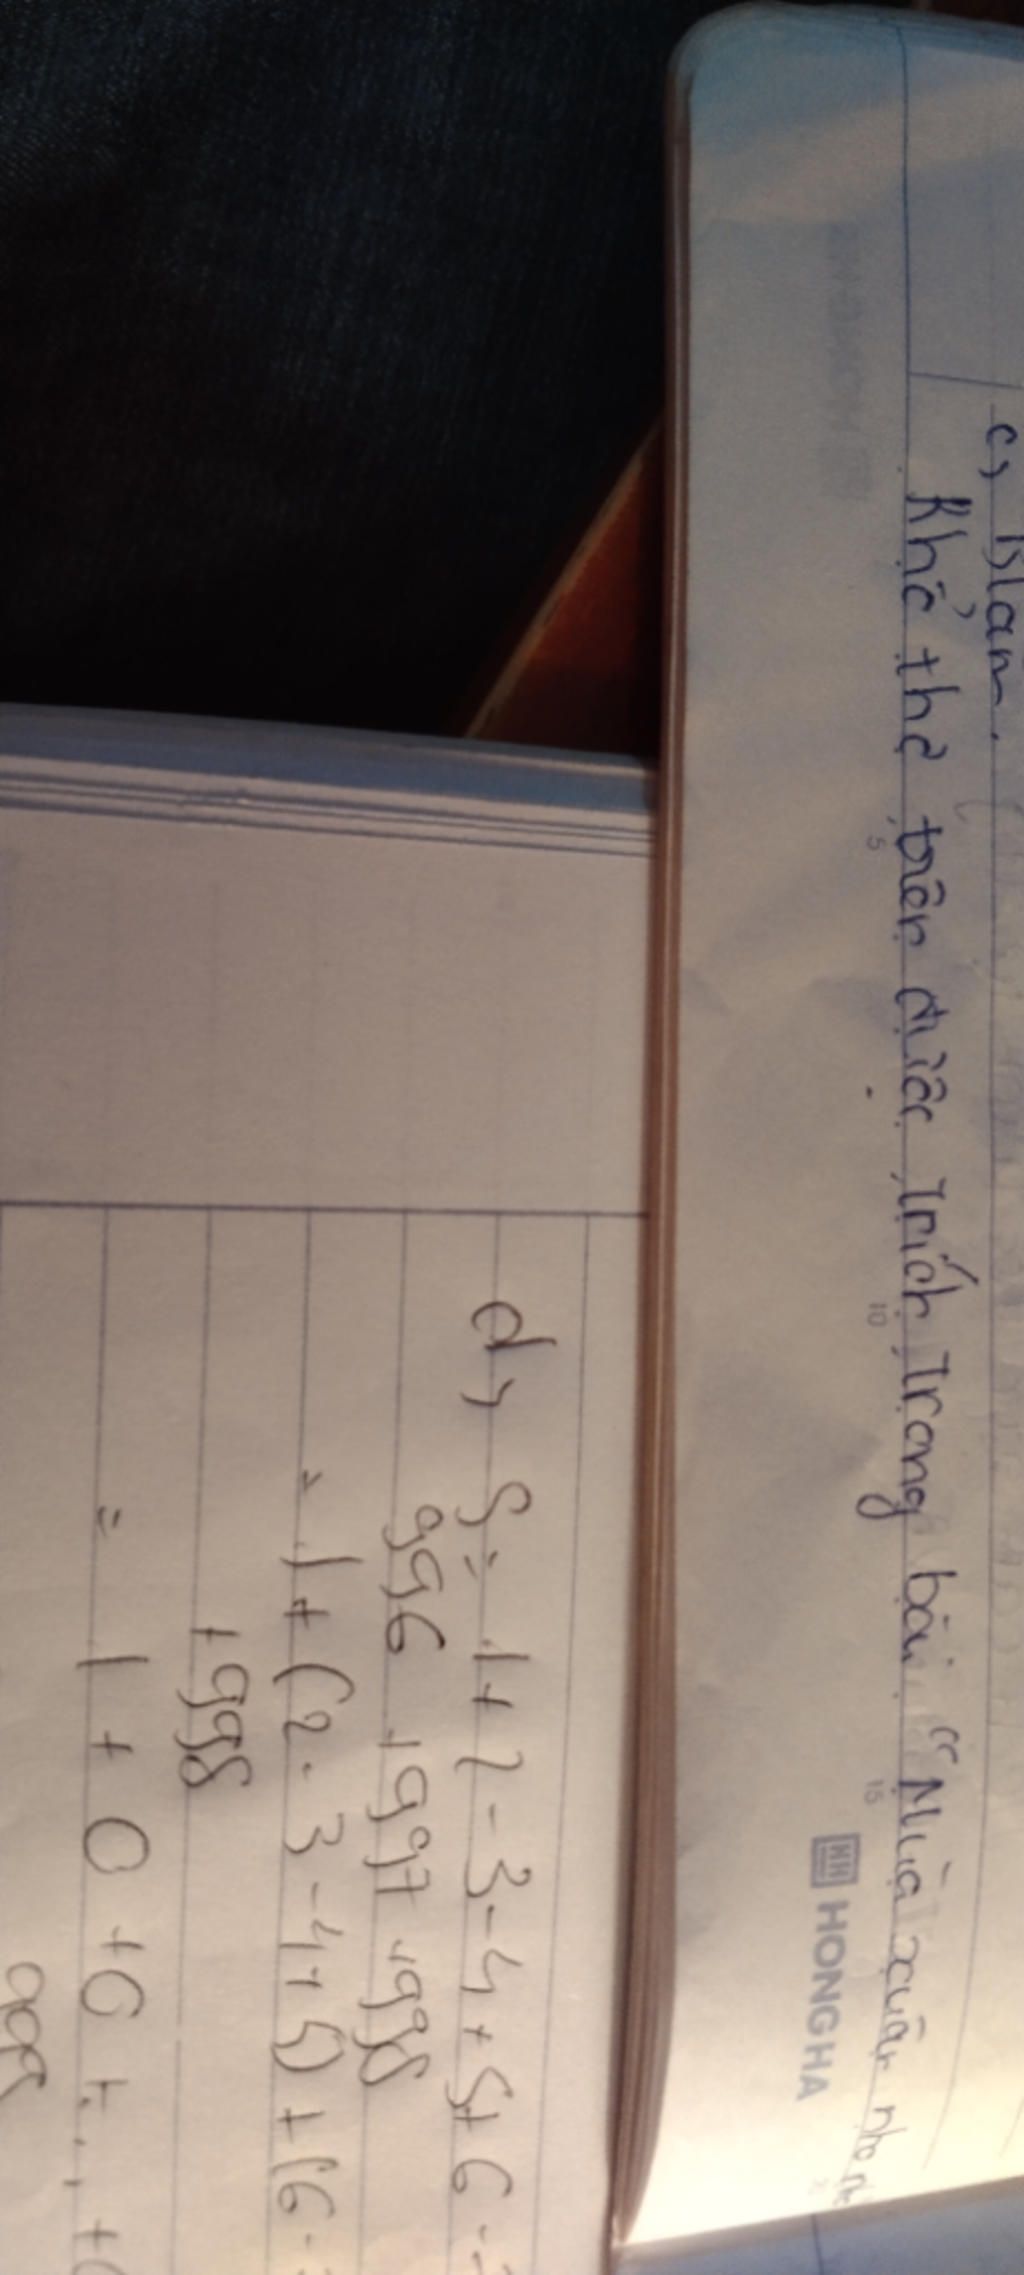 c, Blam.
Khổ thơ trên được Trích Trong bài "Mùa xuân nho
5 10 15
HONG HA
d, S = 1 + 2 - 3 - 4 + 5 + 6 -
996 + 997 + 998
= 1 + (2 - 3 - 4 + 5) + (6 -
+ 998
= 1 + 0 + 0 + . . +0
998